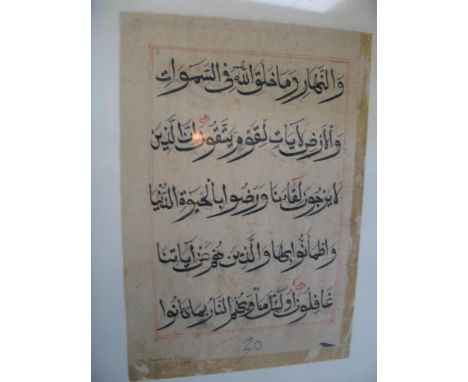 والنهار وما خلق الله في السموات
والأرض لايات لقوم يتقون ان الذين
لا يرجون لقاءنا ورضوا بالحيوة الدنيا
واطمأنوا بها والذين هم عن آياتنا
غافلون اولئك مأويهم النار بما كانوا
30